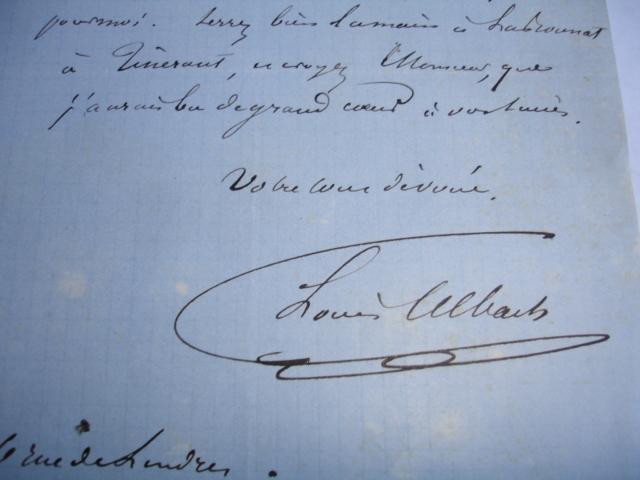 pour moi. Serrez bien la main à
à Tinérant, et croyez Monsieur, que
j'aurais bu de grand cœur à vos lauriers.
Votre tout dévoué.
Louis Ulbach
rue de Londres.